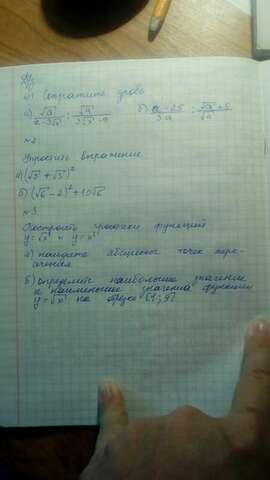 Сократите дробь
а) √a / : √a /
б) a - 25 / 3a : √a + 5 / √a
№2
Упростить выражение
а) (√3 + √5)²
б) (√6 - 2)² + 10√6
№3
Построить графики функций
y = √x и y = x²
а) найдите абсциссы точек пере-
сечения
б) определите наибольшее значение
и наименьшее значения функции
y = √x на отрезке [1; 9]